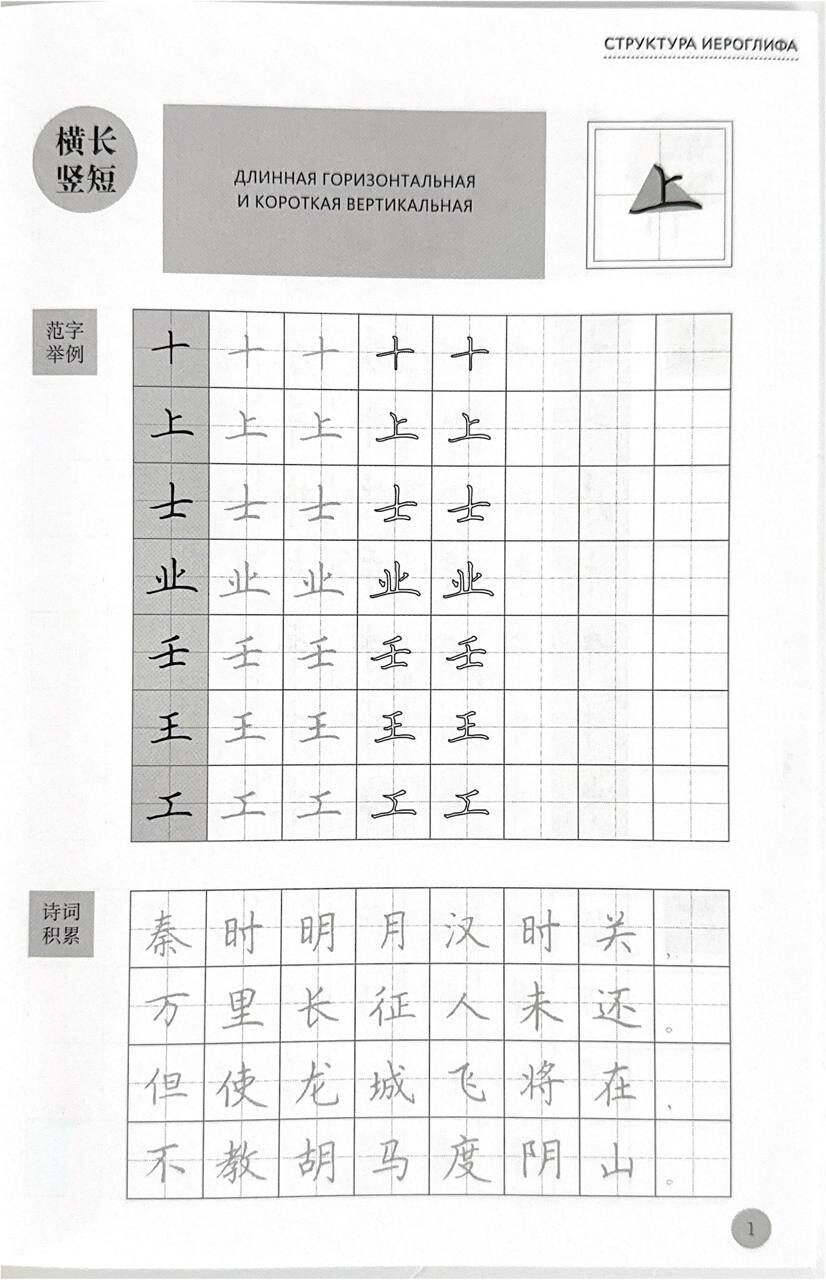 СТРУКТУРА ИЕРОГЛИФА
横长
竖短
ДЛИННАЯ ГОРИЗОНТАЛЬНАЯ
И КОРОТКАЯ ВЕРТИКАЛЬНАЯ
上
范字
举例
十 十 十 十 十
上 上 上 上 上
士 士 士 士 士
业 业 业 业 业
壬 壬 壬 壬 壬
王 王 王 王 王
工 工 工 工 工
诗词
积累
秦时明月汉时关，
万里长征人未还。
但使龙城飞将在，
不教胡马度阴山。
1